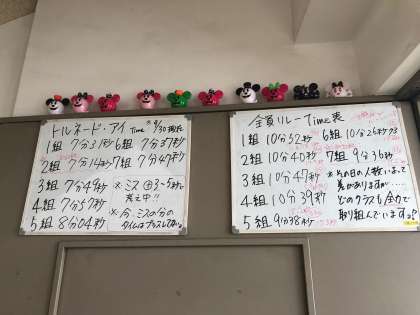 トルネード・アイ Time ※9/30現在
1組 7分31秒 6組 7分37秒
2組 7分14秒 7組 7分47秒
3組 7分49秒
4組 7分57秒
5組 8分04秒
※ミス⊕3~5秒で
考え中!!
※今、ミスの分の
タイムはプラスしてない。
全員リレーTime表
1組 10分52秒 6組 10分26秒
2組 10分40秒 7組 9分36秒
3組 10分47秒
4組 10分39秒
5組 9分38秒
※その日の人数によって
差がありますが…
どのクラスも全力で
取り組んでいますよ?